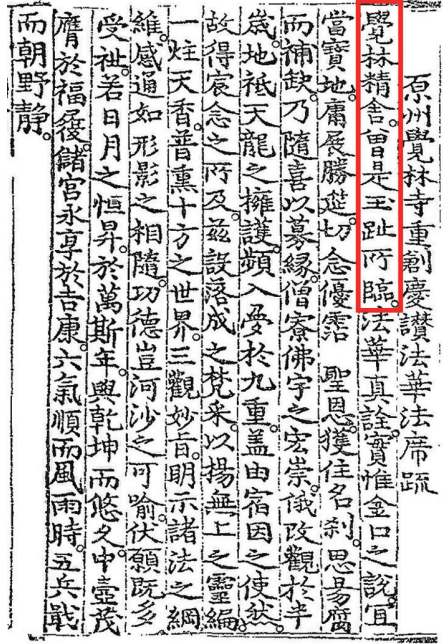 原州覺林寺重創慶讃法華法席䟽
覺林精舍。曾是玉趾所臨。法華真詮。寶惟金口之說。宜
當寶地。庸展勝筵。切念優霑 聖恩。獲住名刹。思易腐
而補缺。乃隨喜以募緣。僧寮佛宇之宏崇。俄改觀於半
歲。地祇天龍之擁護。頻入夢於九重。盖由宿因之使然。
故得宸念之所及。茲設落成之梵采。以揚無上之靈編。
一炷天香。普熏十方之世界。三觀妙旨。明示諸法之綱
維。感通如形影之相隨。功德豈河沙之可喻。伏願旣多
受祉。若日月之恒昇。於萬斯年。與乾坤而悠久。中壼茂
膺於福履。儲宮永享於吉康。六氣順而風雨時。五兵戢
而朝野靜。